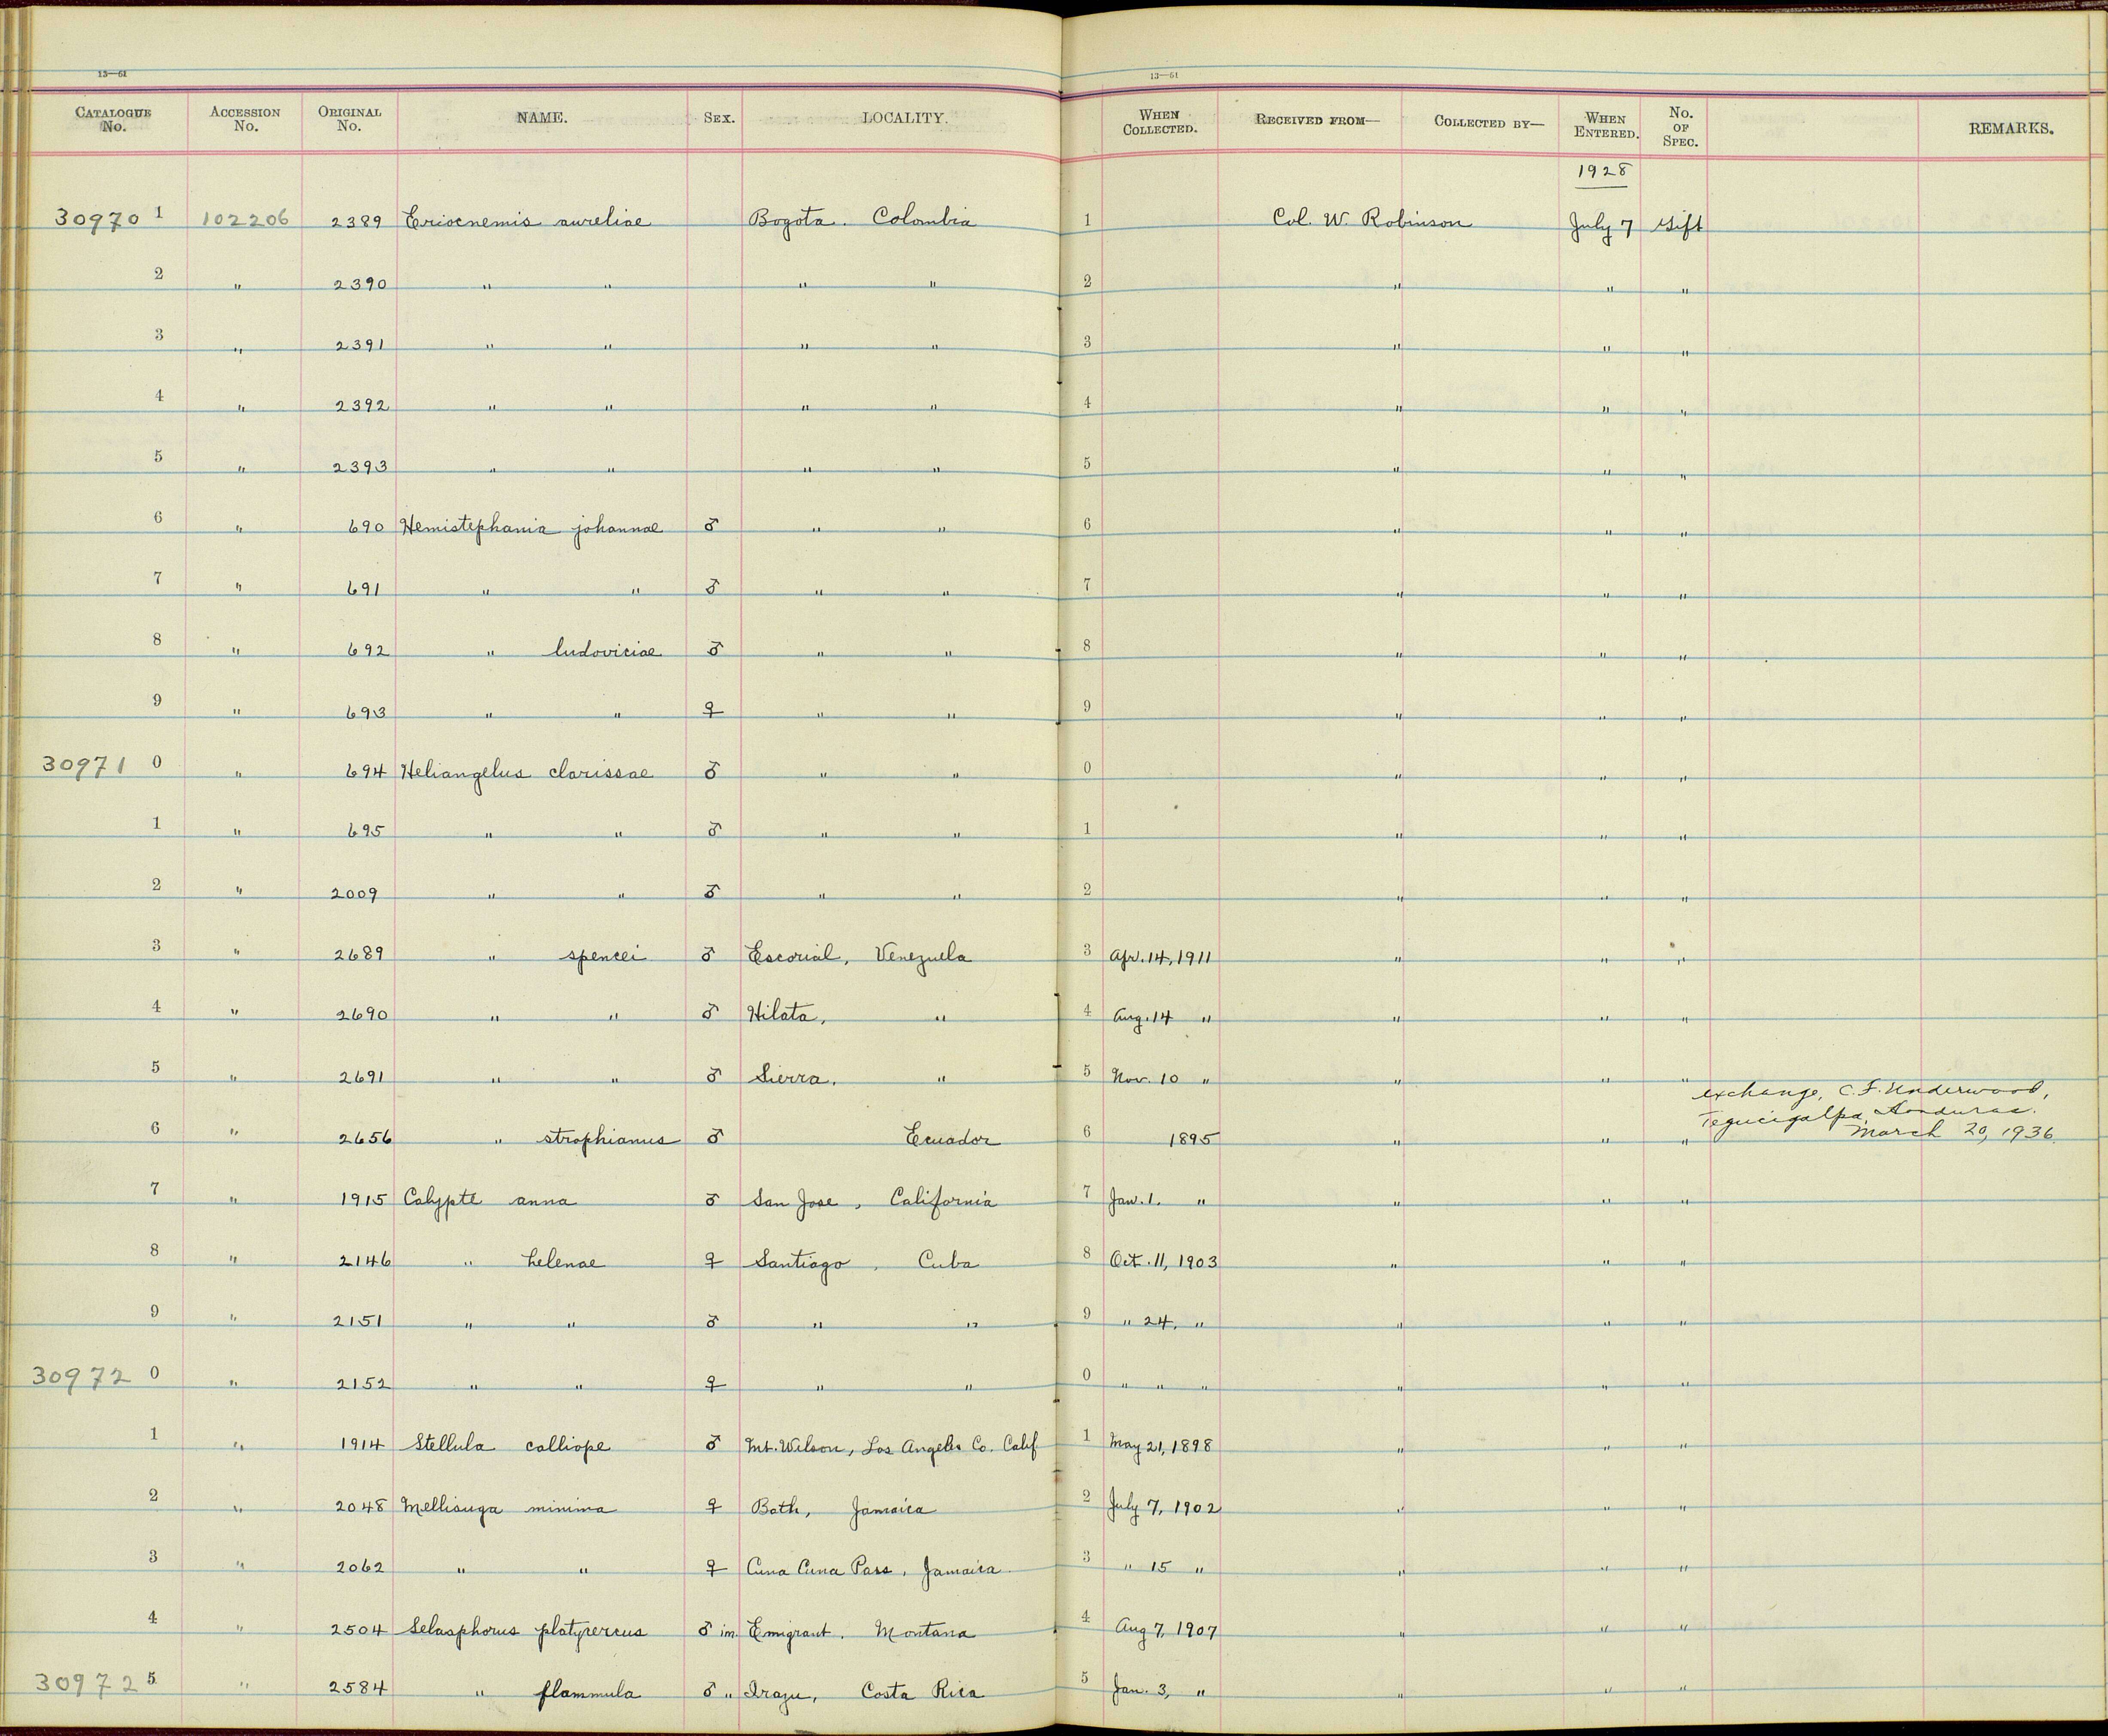 13—61 13—61
CATALOGUE No. ACCESSION No. ORIGINAL No. NAME. SEX. LOCALITY. WHEN COLLECTED. RECEIVED FROM— COLLECTED BY— WHEN ENTERED. No. OF SPEC. REMARKS.
1928
30970 1 102206 2389 Eriocnemis aureliae Bogota. Colombia 1 Col. W. Robinson July 7 Gift
2 " 2390 " " " " 2 " " "
3 " 2391 " " " " 3 " " "
4 " 2392 " " " " 4 " " "
5 " 2393 " " " " 5 " " "
6 " 690 Hemistephania johannae ♂ " " 6 " " "
7 " 691 " " ♂ " " 7 " " "
8 " 692 " ludoviciae ♂ " " 8 " " "
9 " 693 " " ♀ " " 9 " " "
30971 0 " 694 Heliangelus clarissae ♂ " " 0 " " "
1 " 695 " " ♂ " " 1 " " "
2 " 2009 " " ♂ " " 2 " " "
3 " 2689 " spencei ♂ Escorial, Venezuela 3 Apr. 14, 1911 " " "
4 " 2690 " " ♂ Hilata, " 4 Aug. 14 " " " "
5 " 2691 " " ♂ Sierra, " 5 Nov. 10 " " " "
exchange, C. F. Underwood,
Tegucigalpa, Honduras.
6 " 2656 " strophianus ♂ Ecuador 6 1895 " " " March 20, 1936.
7 " 1915 Calypte anna ♂ San Jose, California 7 Jan. 1. " " " "
8 " 2146 " helenae ♀ Santiago, Cuba 8 Oct. 11, 1903 " " "
9 " 2151 " " ♂ " " 9 " 24, " " " "
30972 0 " 2152 " " ♀ " " 0 " " " " " "
1 " 1914 Stellula calliope ♂ Mt. Wilson, Los Angeles Co. Calif 1 May 21, 1898 " " "
2 " 2048 Mellisuga minima ♀ Bath, Jamaica 2 July 7, 1902 " " "
3 " 2062 " " ♀ Cuna Cuna Pass, Jamaica 3 " 15 " " " "
4 " 2504 Selasphorus platycercus ♂ im. Emigrant. Montana 4 Aug 7, 1907 " " "
30972 5 " 2584 " flammula ♂ " Irazu, Costa Rica 5 Jan. 3, " " " "